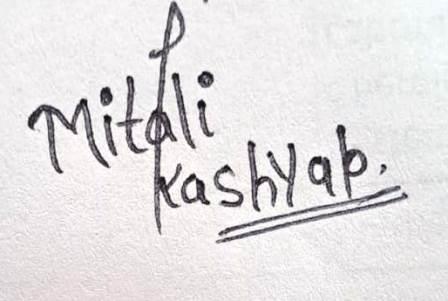 Mitali
Kashyap.